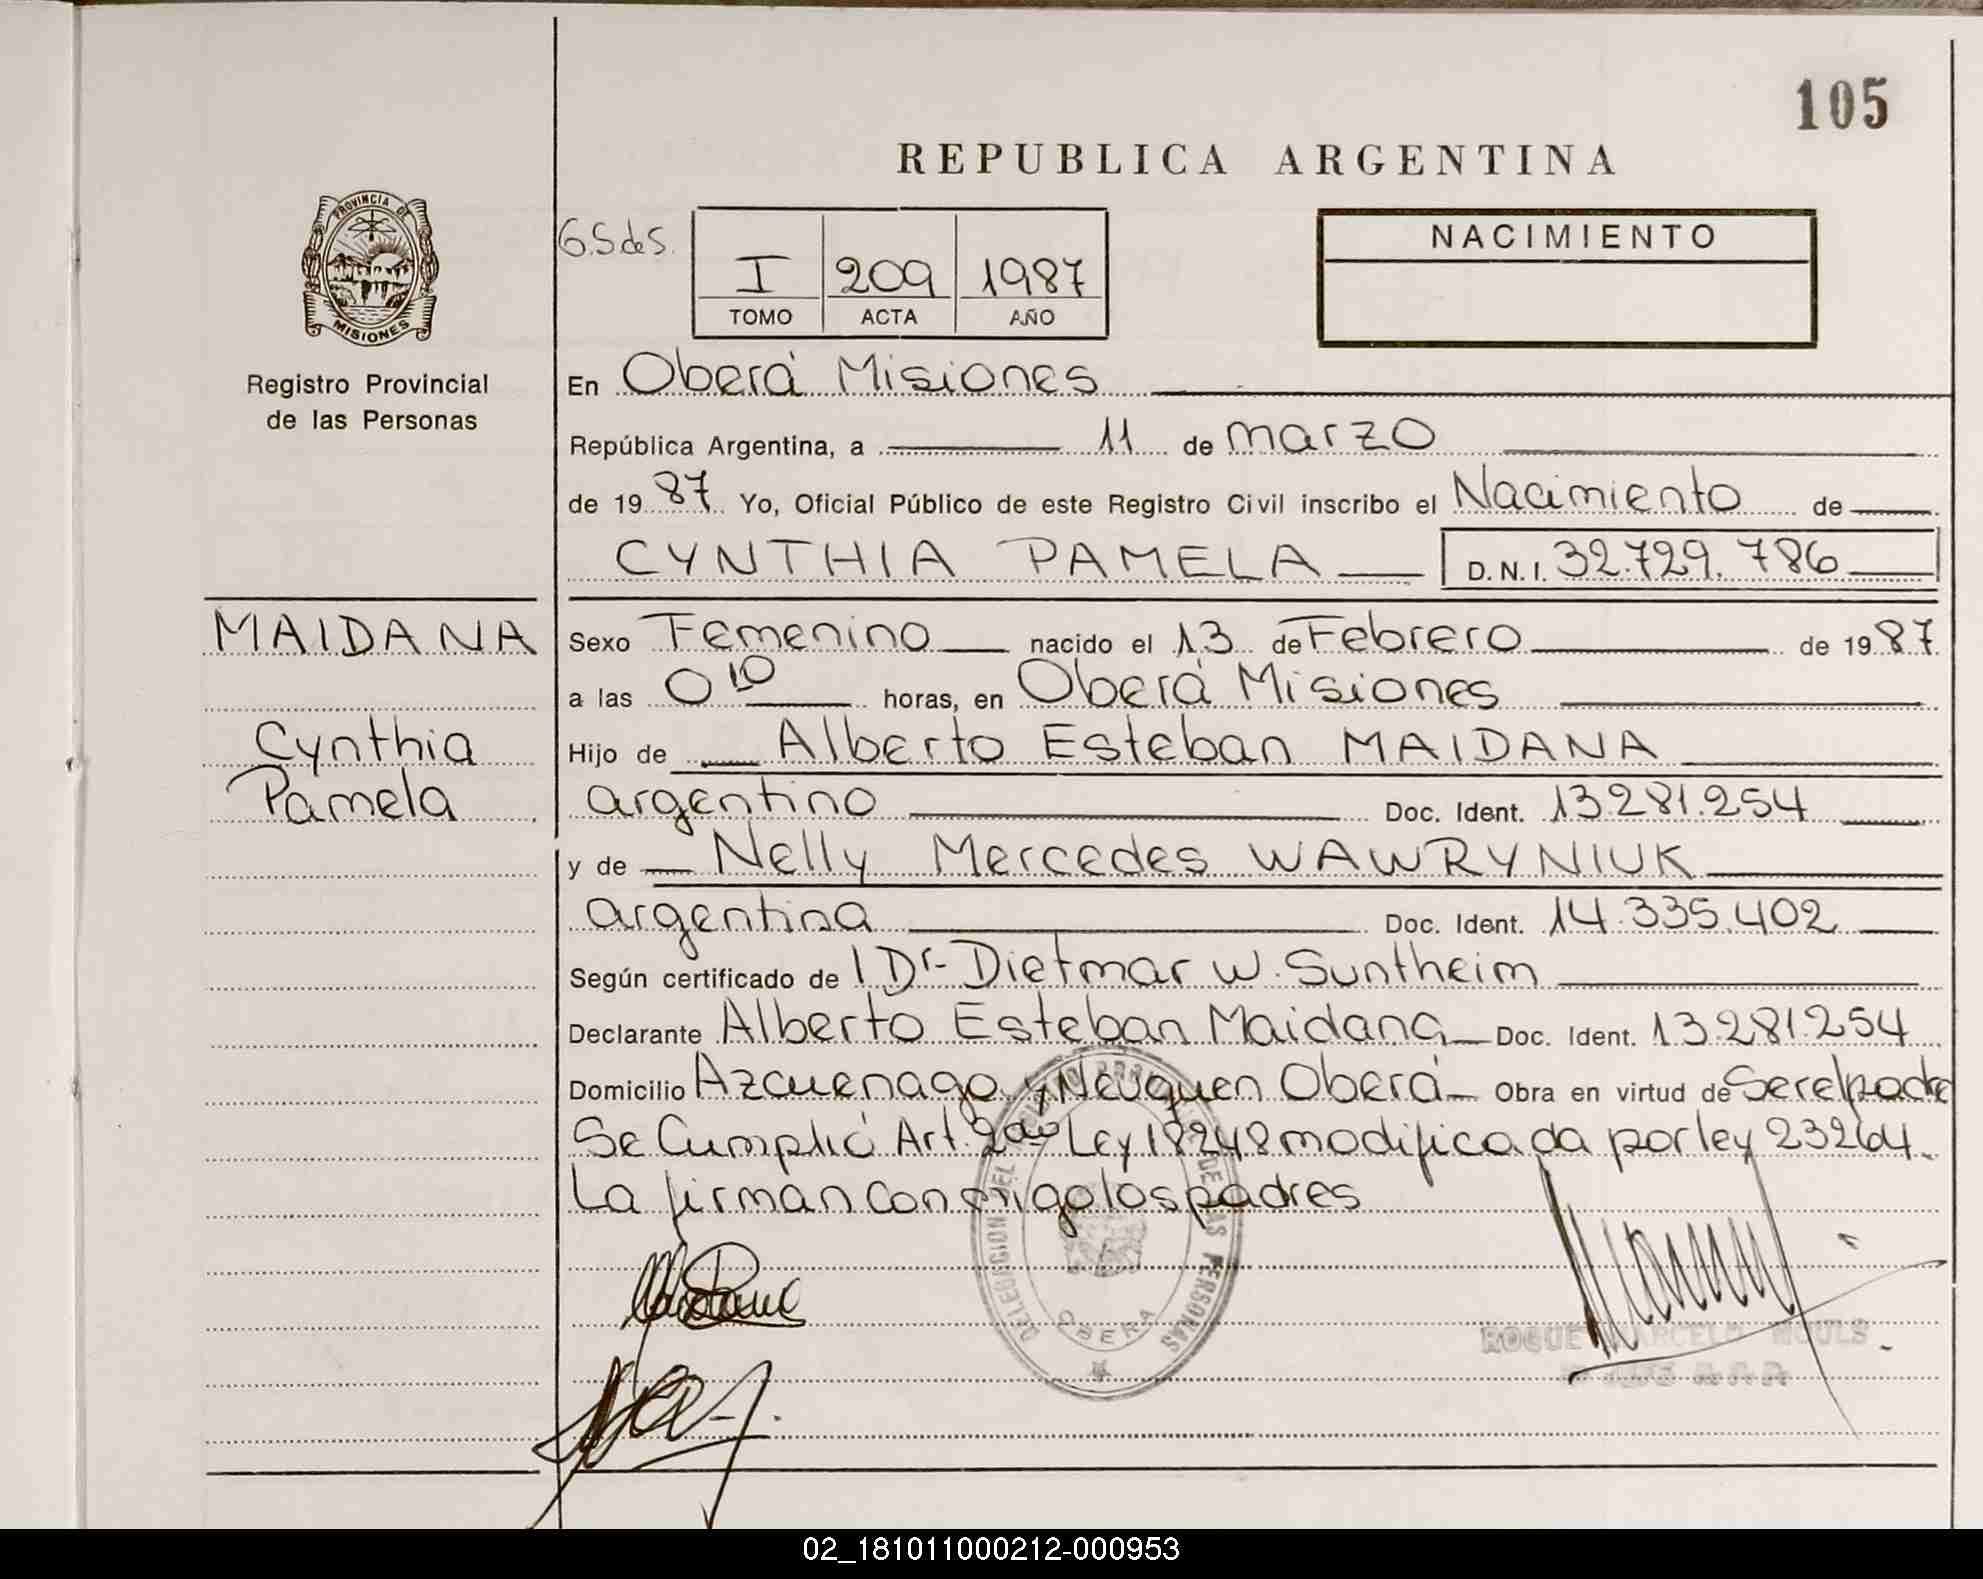 105
REPUBLICA ARGENTINA
PROVINCIA DE
MISIONES
Registro Provincial
de las Personas
G.S de S.
I 209 1987
TOMO ACTA AÑO
NACIMIENTO
En Oberá Misiones
República Argentina, a 11 de marzo
de 19 87 Yo, Oficial Público de este Registro Civil inscribo el Nacimiento de
CYNTHIA PAMELA D.N.I. 32.729.786
MAIDANA
Cynthia
Pamela
Sexo Femenino nacido el 13 de Febrero de 19 87
a las 0 10 horas, en Oberá Misiones
Hijo de Alberto Esteban MAIDANA
argentino Doc. Ident. 13.281.254
y de Nelly Mercedes WAWRYNIUK
argentina Doc. Ident. 14.335.402
Según certificado de l Dr. Dietmar W. Suntheim
Declarante Alberto Esteban Maidana Doc. Ident. 13.281.254
Domicilio Azcuenago y Neuquen Oberá Obra en virtud de Ser el padre
Se Cumplió Art. 2do Ley 18248 modificada por ley 23264.
La firman conmigo los padres
DELEGACION DEL REGISTRO PROVINCIAL DE LAS PERSONAS
OBERA
ROQUE MARCELO
02_181011000212-000953